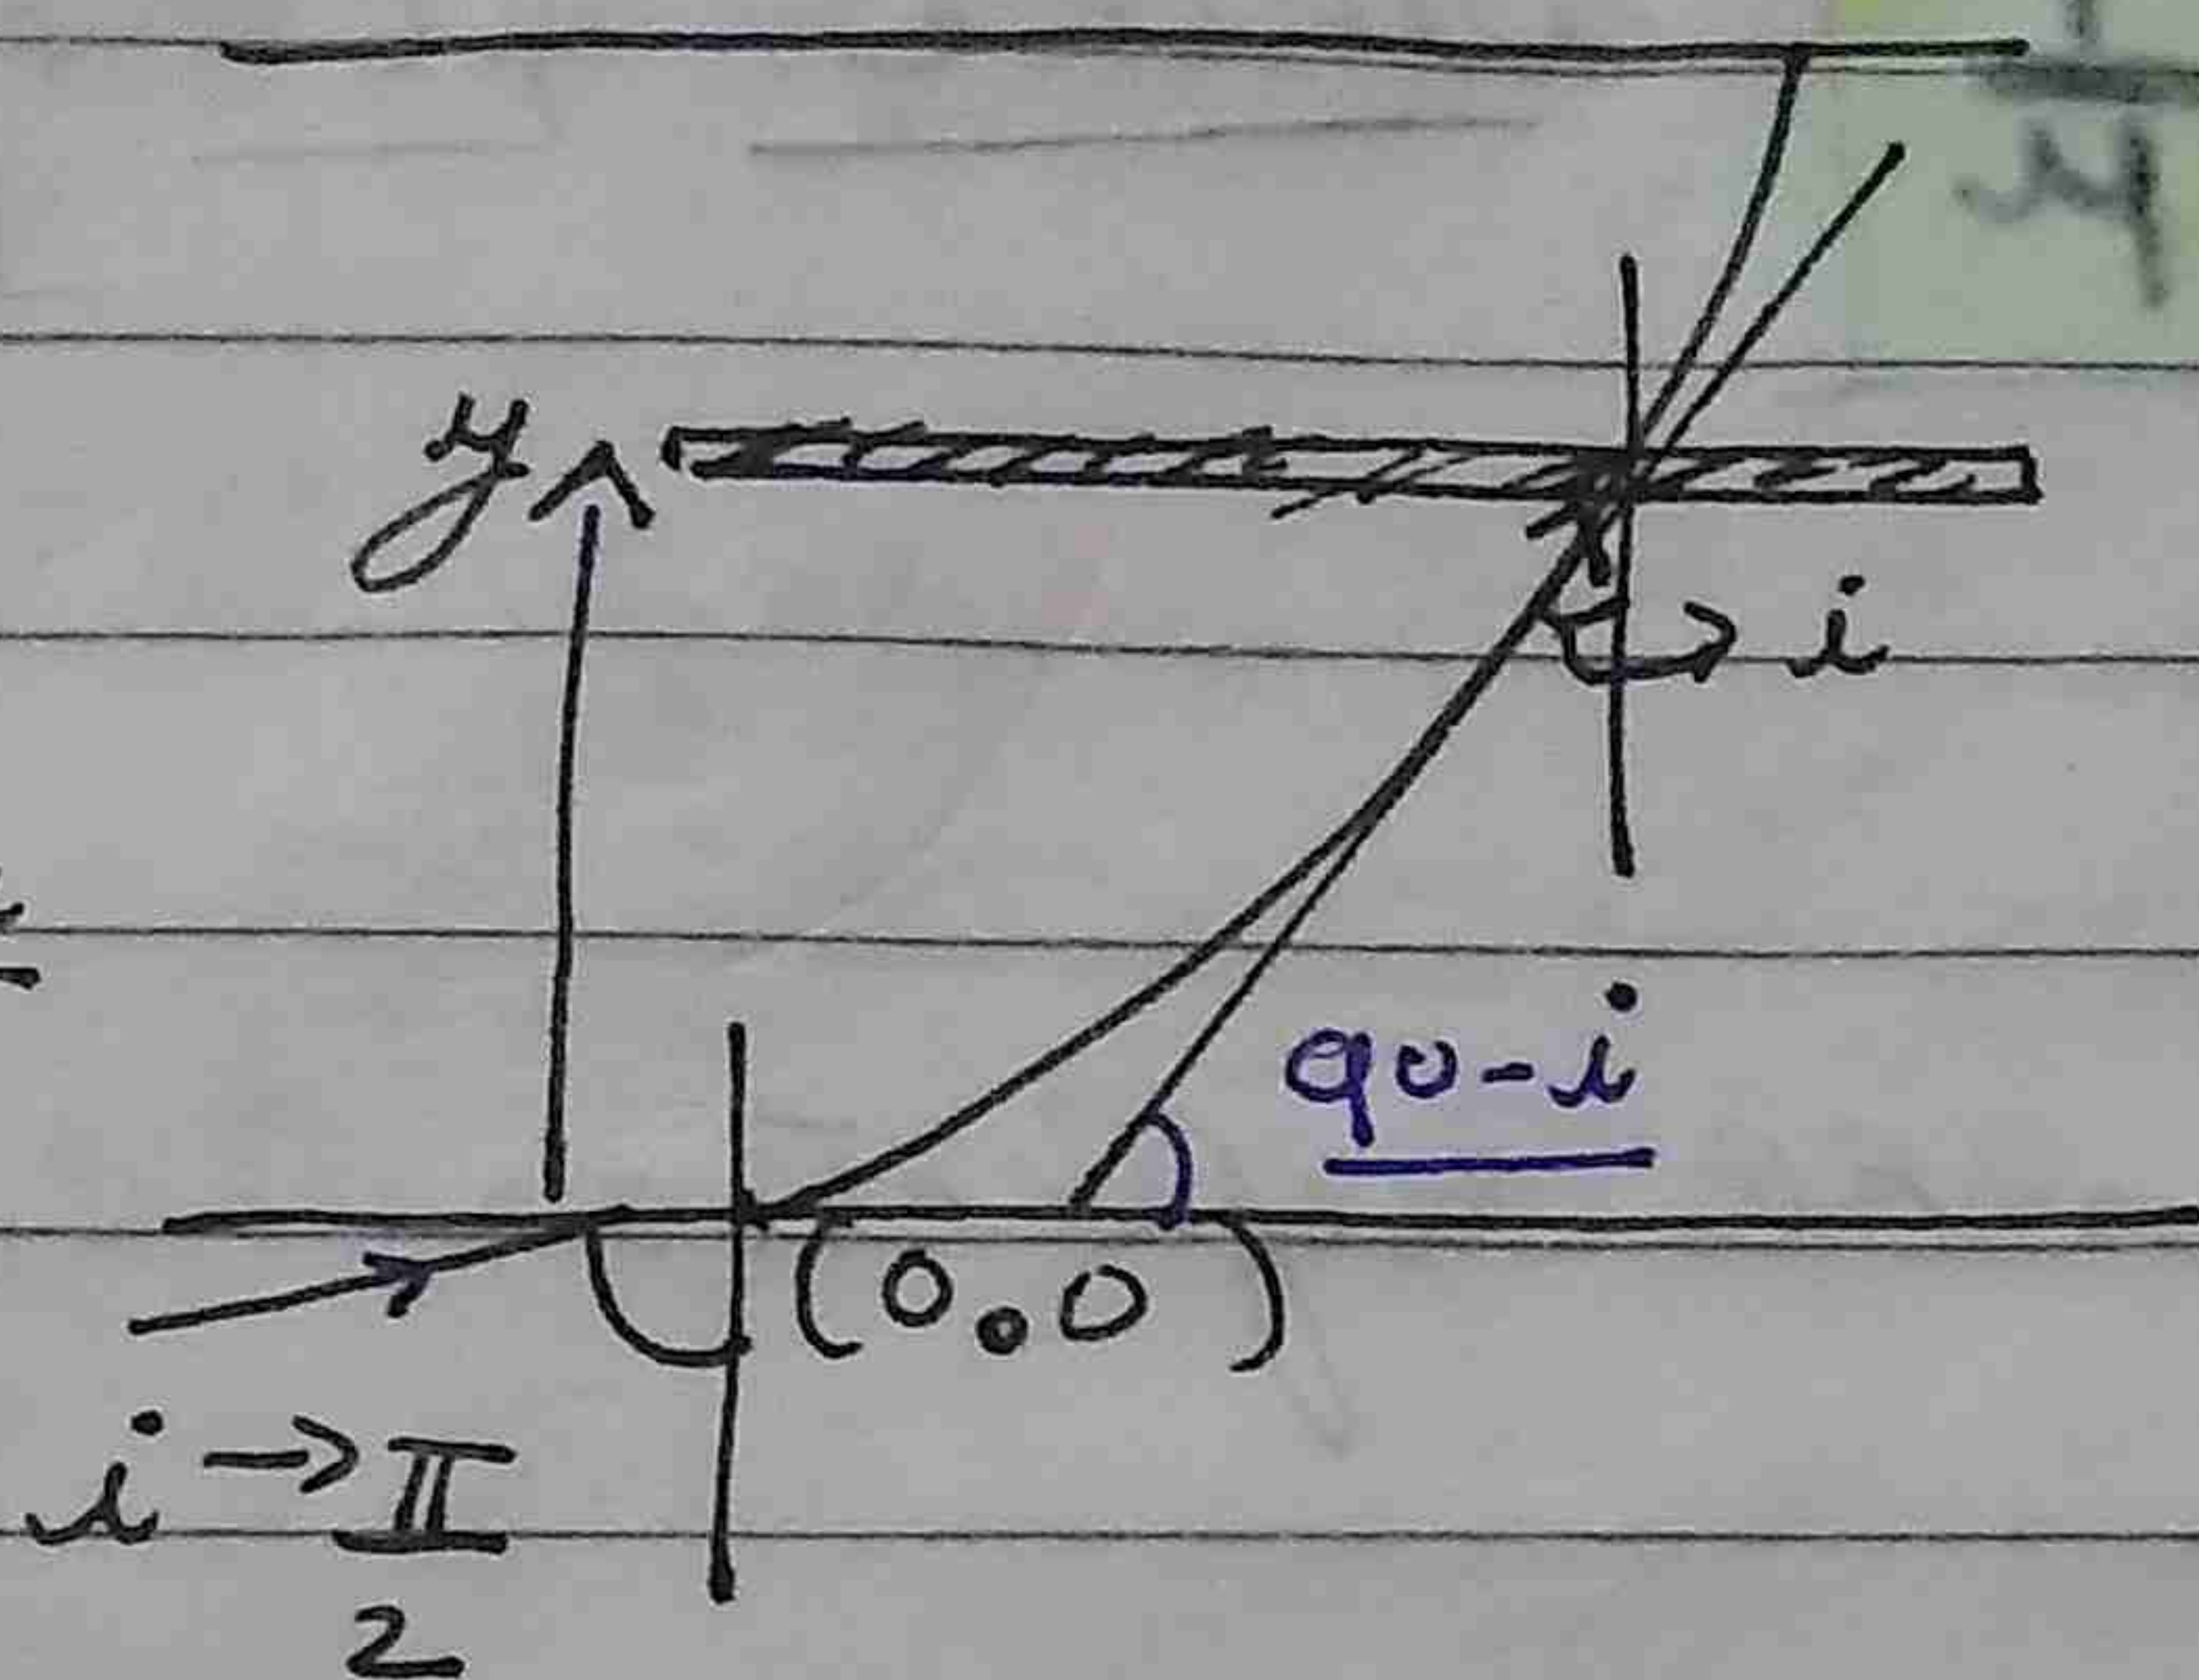 y
i
90-i
(0.0)
i → π
2